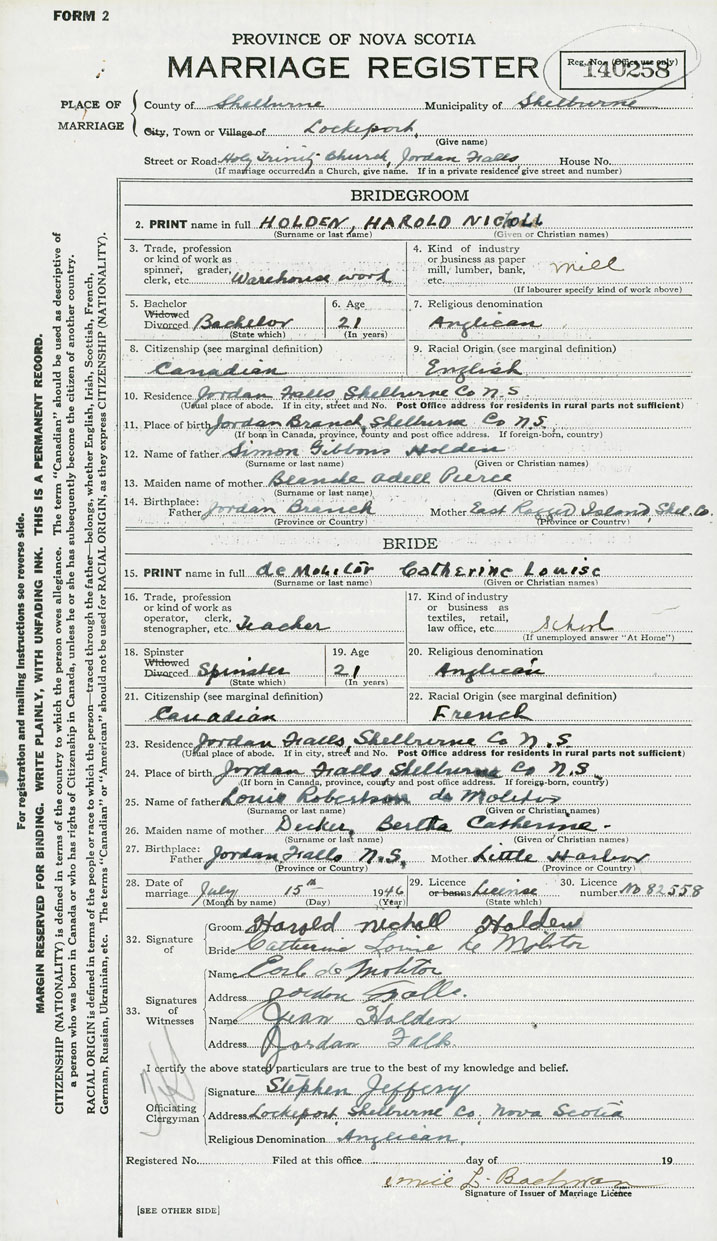 FORM 2
PROVINCE OF NOVA SCOTIA
MARRIAGE REGISTER
Reg. No. (Office use only)
140258
PLACE OF MARRIAGE
County of Shelburne Municipality of Shelburne
City, Town or Village of Lockeport,
(Give name)
Street or Road Holy Trinity Church, Jordan Falls, House No.
(If marriage occurred in a Church, give name. If in a private residence give street and number)
BRIDEGROOM
2. PRINT name in full HOLDEN, HAROLD NICHOLL
(Surname or last name) (Given or Christian names)
3. Trade, profession or kind of work as spinner, grader, clerk, etc. Warehouse work
4. Kind of industry or business as paper mill, lumber, bank, etc. mill
(If labourer specify kind of work above)
5. Bachelor Widowed Divorced Bachelor
(State which)
6. Age 21
(In years)
7. Religious denomination
Anglican
8. Citizenship (see marginal definition)
Canadian
9. Racial Origin (see marginal definition)
English
10. Residence Jordan Falls Shelburne Co N.S
(Usual place of abode. If in city, street and No. Post Office address for residents in rural parts not sufficient)
11. Place of birth Jordan Branch, Shelburne Co N.S.
(If born in Canada, province, county and post office address. If foreign-born, country)
12. Name of father Simon Gibbons Holden
(Surname or last name) (Given or Christian names)
13. Maiden name of mother Blanche Adell Pierce
(Surname or last name) (Given or Christian names)
14. Birthplace: Father Jordan Branch Mother East Ragged Island, Shel. Co.
(Province or Country) (Province or Country)
BRIDE
15. PRINT name in full de Molitor Catherine Louise
(Surname or last name) (Given or Christian names)
16. Trade, profession or kind of work as operator, clerk, stenographer, etc. Teacher
17. Kind of industry or business as textiles, retail, law office, etc. School
(If unemployed answer "At Home")
18. Spinster Widowed Divorced Spinster
(State which)
19. Age 21
(In years)
20. Religious denomination
Anglican
21. Citizenship (see marginal definition)
Canadian
22. Racial Origin (see marginal definition)
French
23. Residence Jordan Falls, Shelburne Co N.S.
(Usual place of abode. If in city, street and No. Post Office address for residents in rural parts not sufficient)
24. Place of birth Jordan Falls Shelburne Co N.S.
(If born in Canada, province, county and post office address. If foreign-born, country)
25. Name of father Louis Robertson de Molitor
(Surname or last name) (Given or Christian names)
26. Maiden name of mother Decker, Bertha Catherine -
(Surname or last name) (Given or Christian names)
27. Birthplace: Father Jordan Falls N.S. Mother Little Harbor
(Province or Country) (Province or Country)
28. Date of marriage July 15th 1946
(Month by name) (Day) (Year)
29. Licence or banns License
(State which)
30. Licence number No 82558
32. Signature of
Groom Harold Nicholl Holden
Bride Catherine Louise de Molitor
33. Signatures of Witnesses
Name de Molitor
Address Jordon Falls.
Name Jean Holden
Address Jordan Falls.
I certify the above stated particulars are true to the best of my knowledge and belief.
Officiating Clergyman
Signature Stephen Jeffery
Address Lockeport, Shelburne Co, Nova Scotia
Religious Denomination Anglican,
Registered No. Filed at this office day of 19
L. Bachman
Signature of Issuer of Marriage Licence
[SEE OTHER SIDE]
For registration and mailing instructions see reverse side.
MARGIN RESERVED FOR BINDING. WRITE PLAINLY, WITH UNFADING INK. THIS IS A PERMANENT RECORD.
CITIZENSHIP (NATIONALITY) is defined in terms of the country to which the person owes allegiance. The term "Canadian" should be used as descriptive of
a person who was born in Canada or who has rights of Citizenship in Canada, unless he or she has subsequently become the citizen of another country.
RACIAL ORIGIN is defined in terms of the people or race to which the person—traced through the father—belongs, whether English, Irish, Scottish, French,
German, Russian, Ukrainian, etc. The terms "Canadian" or "American" should not be used for RACIAL ORIGIN, as they express CITIZENSHIP (NATIONALITY).